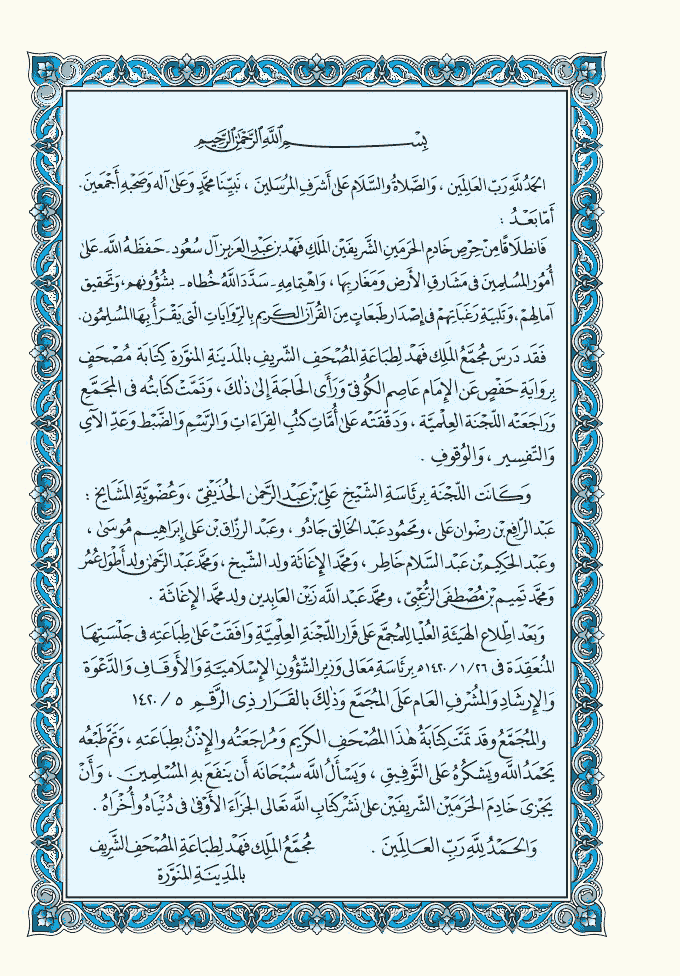 بِسْمِ اللَّهِ الرَّحْمَٰنِ الرَّحِيمِ
الحَمْدُ لِلَّهِ رَبِّ العَالَمِينَ ، وَالصَّلَاةُ وَالسَّلَامُ عَلَىٰ أَشْرَفِ المُرْسَلِينَ ، نَبِيِّنَا مُحَمَّدٍ وَعَلَىٰ آلِهِ وَصَحْبِهِ أَجْمَعِينَ.
أَمَّا بَعْدُ :
فَانطِلَاقًا مِنْ حِرْصِ خَادِمِ الحَرَمَيْنِ الشَّرِيفَيْنِ المَلِكِ فَهْد بن عَبْدِ العَزِيزِ آل سُعُود ـ حَفِظَهُ اللَّه ـ عَلَىٰ
أُمُورِ المُسْلِمِينَ فِي مَشَارِقِ الأَرْضِ وَمَغَارِبِهَا ، وَاهْتِمَامِهِ ـ سَدَّدَ اللَّهُ خُطَاه ـ بِشُؤُونِهِم، وَتَحْقِيق
آمَالِهِمْ، وَتَلْبِيَةِ رَغَبَاتِهِمْ فِي إِصْدَارِ طَبَعَاتٍ مِنَ القُرْآنِ الكَرِيمِ بِالرِّوَايَاتِ الَّتِي يَقْرَأُ بِهَا المُسْلِمُون.
فَقَد دَرَسَ مُجَمَّعُ المَلِك فَهْد لِطِبَاعَةِ المُصْحَفِ الشَّرِيفِ بِالمَدِينَةِ المُنَوَّرَة كِتَابَةَ مُصْحَفٍ
بِرِوَايَةِ حَفْصٍ عَن الإِمَام عَاصِمٍ الكُوفِيّ وَرَأَى الحَاجَةَ إِلىٰ ذٰلِكَ ، وَتَمَّتْ كِتَابَتُه فِي المُجَمَّعِ
وَرَاجَعَتْه اللَّجْنَةُ العِلْمِيَّة ، وَدَقَّقَتْه عَلَىٰ أُمَّاتِ كُتُبِ القِرَاءَاتِ وَالرَّسْمِ وَالضَّبْطِ وَعَدِّ الآيِ
وَالتَّفْسِيرِ ، وَالوُقُوفِ .
وَكَانَت اللَّجْنَةُ بِرِئَاسَةِ الشَّيْخِ عَلِيّ بْن عَبْد الرَّحْمٰن الحُذَيْفِيّ ، وَعُضْوِيَّةِ المَشَايِخ :
عَبْد الرَّافِع بْن رِضْوَان عَلي ، وَمَحْمُود عَبْد الخَالِق جَادُو ، وعَبْد الرَّزَّاق بْن عَلي إِبْرَاهِيم مُوسَىٰ ،
وعَبْد الحَكِيم بْن عَبْد السَّلَام خَاطِر ، وَمُحَمَّد الإِغَاثَة ولد الشَّيْخ ، وَمُحَمَّد عَبْد الرَّحْمٰن ولد أَطْوَل عُمُر
وَمُحَمَّد تَمِيم بْن مُصْطَفَى الزُّعْبِيّ ، ومحمَّد عَبْد اللَّه زَيْن العَابِدِين ولد محمَّد الإِغَاثَة .
وَبَعْد اطِّلَاع الهَيْئَةِ العُلْيَا لِلمُجَمَّعِ عَلىٰ قَرَارِ اللَّجْنَةِ العِلْمِيَّةِ وَافَقَتْ عَلىٰ طِبَاعَتِه فِي جَلْسَتِهَا
المُنعَقِدَة فِي ١٤٢٠/١/٢٦هـ بِرِئَاسَة مَعَالي وَزِير الشُّؤُونِ الإِسْلَامِيَّةِ وَالأَوقَافِ وَالدَّعْوَة
وَالإِرشَادِ وَالمُشْرِفِ العَام عَلَى المُجَمَّعِ وَذٰلِكَ بِالقَرَارِ ذِي الرَّقْمِ ٥ / ١٤٢٠
والمُجَمَّعُ وَقَد تَمَّتْ كِتَابَةُ هٰذَا المُصْحَفِ الكَرِيمِ وَمُرَاجَعَتُه وَالإِذْنُ بِطِبَاعَتِهِ ، وَتَمَّ طَبْعُه
يَحْمَدُ اللَّه ويَشكُرُهُ عَلَى التَّوْفِيقِ ، وَيَسْأَلُ اللَّه سُبْحَانَه أَن يَنفَعَ بِهِ المُسْلِمِينَ ، وَأَنْ
يَجْزِيَ خَادِمَ الحَرَمَيْنِ الشَّرِيفَيْنِ عَلَىٰ نَشْر كِتَابِ اللَّه تَعَالى الجَزَاءَ الأَوْفَىٰ فِي دُنْيَاهُ وَأُخْرَاهُ .
وَالحَمْدُ لِلَّهِ رَبِّ العَالَمِينَ .
مُجَمَّعُ المَلِك فَهْد لِطِبَاعَةِ المُصْحَفِ الشَّرِيفِ
بِالمَدِينَةِ المُنَوَّرَةِ